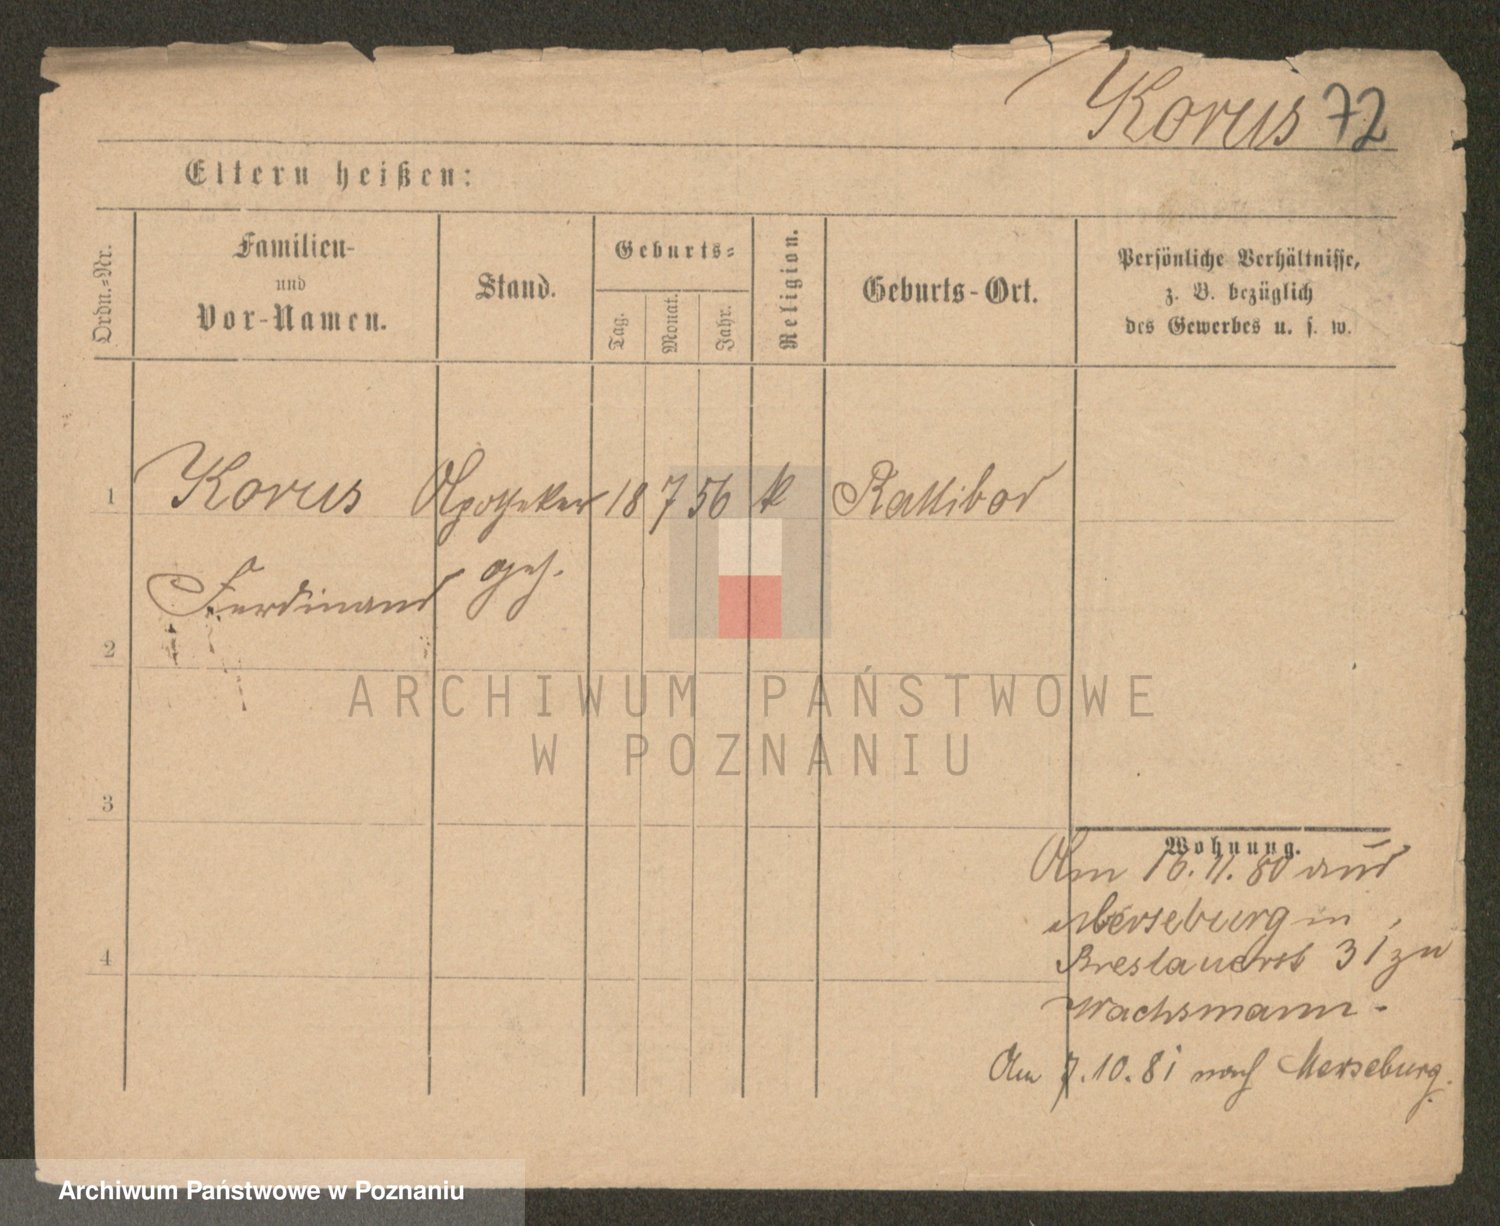 Korus 72
Eltern heißen:
Ordn.-Nr.
Familien-
und
Vor-Namen.
Stand.
Geburts-
Tag.
Monat.
Jahr.
Religion.
Geburts-Ort.
Persönliche Verhältnisse,
z. B. bezüglich
des Gewerbes u. s. w.
1 Korus Apotheker 18 7 56 k Rattibor
geh.
Ferdinand
2
ARCHIWUM PAŃSTWOWE
W POZNANIU
3
Wohnung.
Am 16.11.80 aus
Merseburg in
4
Breslauerst 31 zu
Wachsmann -
Am 7.10.81 nach Merseburg.
Archiwum Państwowe w Poznaniu